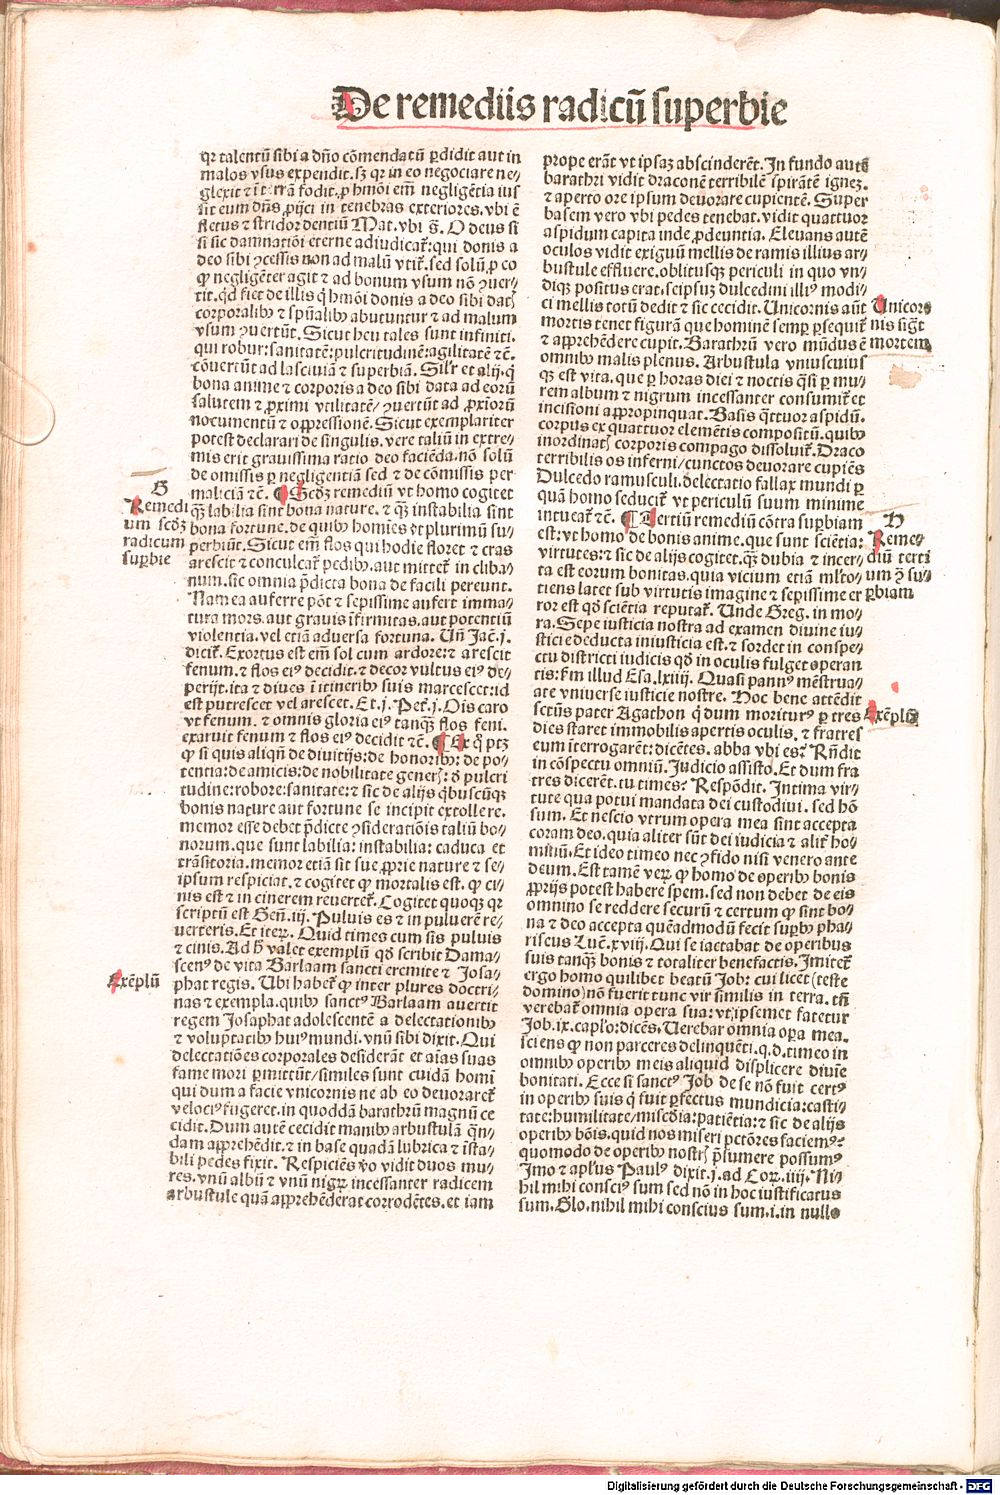 De remediis radicū superbie
qr talentū sibi a dño cōmendatū ꝑdidit aut in
malos vsus expendit. sꝫ qr in eo negociare ne⸗
glexit ⁊ ī terrā fodit. ꝓ hmōi em̄ negligētia ius
sit eum dn̄s ꝓijci in tenebras exteriores. vbi ē
fletus ⁊ stridor dentiū Mat. vbi s̄. O deus si
si sic damnatiōi eterne adiudicat᷑: qui donis a
deo sibi ꝯcessis non ad malū vtit᷑. sed solū ꝓ eo
ꝙ negligēter agit ⁊ ad bonum vsum nō ꝯuer⸗
tit. qd fiet de illis q̇ hmōi donis a deo sibi datꝭ
corporalibꝰ ⁊ spūalibꝰ abutuntur ⁊ ad malum
vsum ꝯuertūt. Sicut heu tales sunt infiniti.
qui robur: sanitatē: pulcritudinē: agilitatē ⁊c̄.
cōuertūt ad lasciuiā ⁊ superbiā. Silr̄ et alij. q̇
bona anime ⁊ corporis a deo sibi data ad eorū
salutem ⁊ ꝓximi vtilitatē/ ꝯuertūt ad ꝓxiorū
nocumentū ⁊ oppressionē. Sicut exemplariter
potest declarari de singulis. vere taliū in extre⸗
mis erit grauissima ratio deo faciēda. nō solū
de omissis ꝑ negligentiam sed ⁊ de cōmissis per
maliciā ⁊c̄. ¶ Scd̄ꝫ remediū vt homo cogitet
q̄ꝫ labilia sint bona nature. ⁊ q̄ꝫ instabilia sint
bona fortune. de quibꝰ homīes vt plurimū su⸗
perbiūt. Sicut em̄ flos qui hodie floret ⁊ cras
arescit ⁊ conculcat᷑ pedibꝰ. aut mittet᷑ in cliba⸗
num. sic omnia p̄dicta bona de facili pereunt.
Nam ea auferre pōt ⁊ sepissime aufert imma⸗
tura mors. aut grauis īfirmitas. aut potentiū
violentia. vel etiā aduersa fortuna. Un̄ Jac̄. j.
dicit᷑. Exortus est em̄ sol cum ardore: ⁊ arescit
fenum. ⁊ flos eiꝰ decidit. ⁊ decor vultus eiꝰ de⸗
perijt. ita ⁊ diues ī itineribꝰ suis marcescet: id
est putrescet vel arescet. Et. j. Pet᷑. j. Ois caro
vt fenum. ⁊ omnis gloria eiꝰ tanq̄ꝫ flos feni.
exaruit fenum ⁊ flos eiꝰ decidit ⁊c̄. ¶ Ex q̊ ptꝫ
ꝙ si quis aliqn̄ de diuitijs: de honoribꝰ: de po⸗
tentia: de amicis: de nobilitate generꝭ: d̄ pulcri
tudine: robore: sanitate: ⁊ sic de alijs q̇buscūqꝫ
bonis nature aut fortune se incipit extollere.
memor esse debet p̄dicte ꝯsideratiōis taliū bo⸗
norum. que sunt labilia: instabilia: caduca et
trāsitoria. memor etiā sit sue ꝓprie nature ⁊ se⸗
ipsum respiciat. ⁊ cogitet ꝙ mortalis est. ꝙ ci⸗
nis est ⁊ in cinerem reuertet᷑. Cogitet quoqꝫ qr
scriptū est Gen̄. iij. Puluis es ⁊ in puluerē re⸗
uerteris. Et iteꝝ. Quid times cum sis puluis
⁊ cinis. Ad h̊ valet exemplū qd̊ scribit Dama⸗
scenꝰ de vita Barlaam sancti eremite ⁊ Josa⸗
phat regis. Ubi habet᷑ ꝙ inter plures doctri⸗
nas ⁊ exempla. quibꝰ sanctꝰ Barlaam auertit
regem Josaphat adolescentē a delectationibꝰ
⁊ voluptatibꝰ huiꝰ mundi. vnū sibi dixit. Qui
delectatiōes corporales desiderāt et aīas suas
fame mori ꝑmittūt/ similes sunt cuidā homī
qui dum a facie vnicornis ne ab eo deuoraret᷑
velociꝰ fugeret. in quoddā barathrū magnū ce
cidit. Dum autē cecidit manibꝰ arbustulā q̄n⸗
dam apprehēdit. ⁊ in base quadā lubrica ⁊ īsta⸗
bili pedes fixit. Respiciēs v̊o vidit duos mu⸗
res. vnū albū ⁊ vnū nigꝝ incessanter radicem
arbustule quā apprehēderat corrodētes. et iam
G
Remedi
um scd̄ꝫ
radicum
supbie
Exēplū
prope erāt vt ipsaꝫ abscinderēt. In fundo autē
barathri vidit draconē terribilē spirātē igneꝫ.
⁊ aperto ore ipsum deuorare cupientē. Super
basem vero vbi pedes tenebat. vidit quattuor
aspidum capita inde ꝓdeuntia. Eleuans autē
oculos vidit exiguū mellis de ramis illius ar⸗
bustule effluere. oblitusqꝫ periculi in quo vn⸗
diqꝫ positus erat. seipsuꝫ dulcedini illiꝰ modi⸗
ci mellis totū dedit ⁊ sic cecidit. Unicornis aūt
mortis tenet figurā que hominē semꝑ ꝑsequit᷑
⁊ apprehēdere cupit. Barathrū vero mūdus ē
omnibꝰ malis plenus. Arbustula vniuscuius
qꝫ est vita. que ꝑ horas diei ⁊ noctis q̄si ꝑ mu⸗
rem album ⁊ nigrum incessanter consumit᷑ et
incisioni appropinquat. Basis q̄ttuor aspidū.
corpus ex quattuor elemētis compositū. quibꝰ
inordinatꝭ corporis compago dissoluit᷑. Draco
terribilis os inferni/ cunctos deuorare cupiēs
Dulcedo ramusculi. delectatio fallax mundi ꝑ
quā homo seducit᷑ vt periculū suum minime
intueat᷑ ⁊c̄. ¶ Tertiū remediū cōtra suꝑbiam
est: vt homo de bonis anime. que sunt sciētia:
virtutes: ⁊ sic de alijs cogitet. q̄ꝫ dubia ⁊ incer⸗
ta est eorum bonitas. quia vicium etiā ml̓to⸗
tiens latet sub virtutis imagine ⁊ sepissime er
ror est qd̊ sciētia reputat᷑. Unde Greg. in mo⸗
ra. Sepe iusticia nostra ad examen diuine iu⸗
sticie deducta iniusticia est. ⁊ sordet in conspe⸗
ctu districti iudicis qd̊ in oculis fulget operan
tis: ẜm illud Esa. lxiiij. Quasi pannꝰ mēstrua⸗
ate vniuerse iusticie nostre. Hoc bene attēdit
sctūs pater Agathon q̇ dum moriturꝰ ꝑ tres
dies staret immobilis apertis oculis. ⁊ fratres
eum īterrogarēt: dicētes. abba vbi es? Rn̄dit
in cōspectu omniū. Judicio assisto. Et dum fra
tres dicerēt. tu times? Respōdit. Intima vir⸗
tute qua potui mandata dei custodiui. sed hō
sum. Et nescio vtrum opera mea sint accepta
coram deo. quia aliter sūt dei iudicia ⁊ alit᷑ ho⸗
miūū. Et ideo timeo nec ꝯfido nisi venero ante
deum. Est tamē veꝝ ꝙ homo de operibꝰ bonis
ꝓprijs potest habere spem. sed non debet de eis
omnino se reddere securū ⁊ certum ꝙ sint bo⸗
na ⁊ deo accepta quēadmodū fecit suꝑbꝰ pha⸗
riseus Luc̄. xviij. Qui se iactabat de operibus
suis tanq̄ꝫ bonis ⁊ totaliter benefactis. Imitet᷑
ergo homo quilibet beatū Job: cui licet (teste
domino) nō fuerit tunc vir similis in terra. tn̄
verebat᷑ omnia opera sua: vt ipsemet fatetur
Job. ix. capl̓o: dicēs. Uerebar omnia oꝑa mea.
sciens ꝙ non parceres delinquēti. q. d. timeo in
omnibꝰ operibꝰ meis aliquid displicere diuīe
bonitati. Ecce si sanctꝰ Job de se nō fuit certꝰ
in operibꝰ suis q̇ fuit ꝑfectus mundicia: casti⸗
tate: humilitate/ miscd̓ia: patiētia: ⁊ sic de alijs
operibꝰ bōis. quid nos miseri pctōres faciemꝰ?
quomodo de operibꝰ nostrꝭ p̄sumere possumꝰ
Imo ⁊ apl̓us Paulꝰ dixit. j. ad Coꝝ. iiij. Ni⸗
hil mihi consciꝰ sum sed nō in hoc iustificatus
sum. Glo. nihil mihi conscius sum. i. in nullo
Unicor⸗
nis sig̊t
mortem
H
Reme⸗
diū terti
um ꝯ su⸗
ꝑbiam
Exēplū
Digitalisierung gefördert durch die Deutsche Forschungsgemeinschaft - DFG